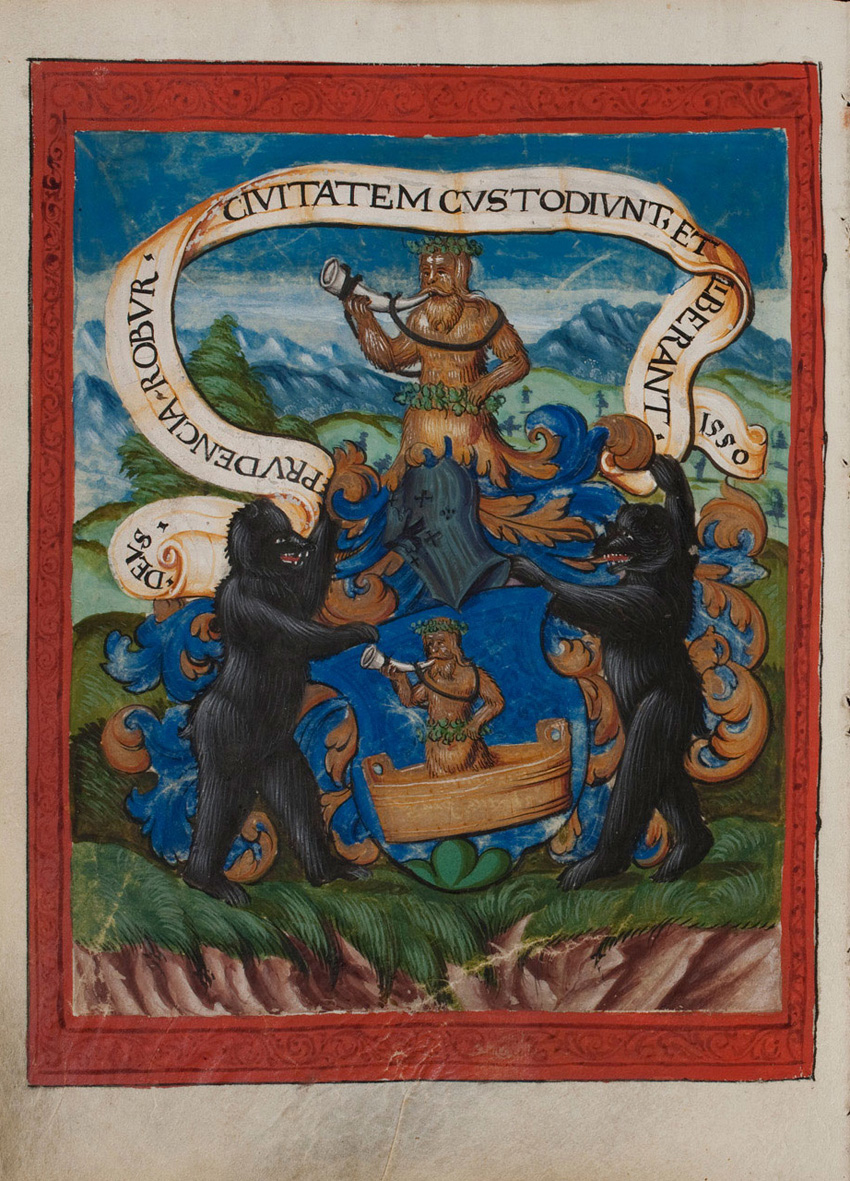 ·DEVS·
PRVDENCIA·ROBVR·
CIVITATEM CVSTODIVNT, ET
LIBERANT·